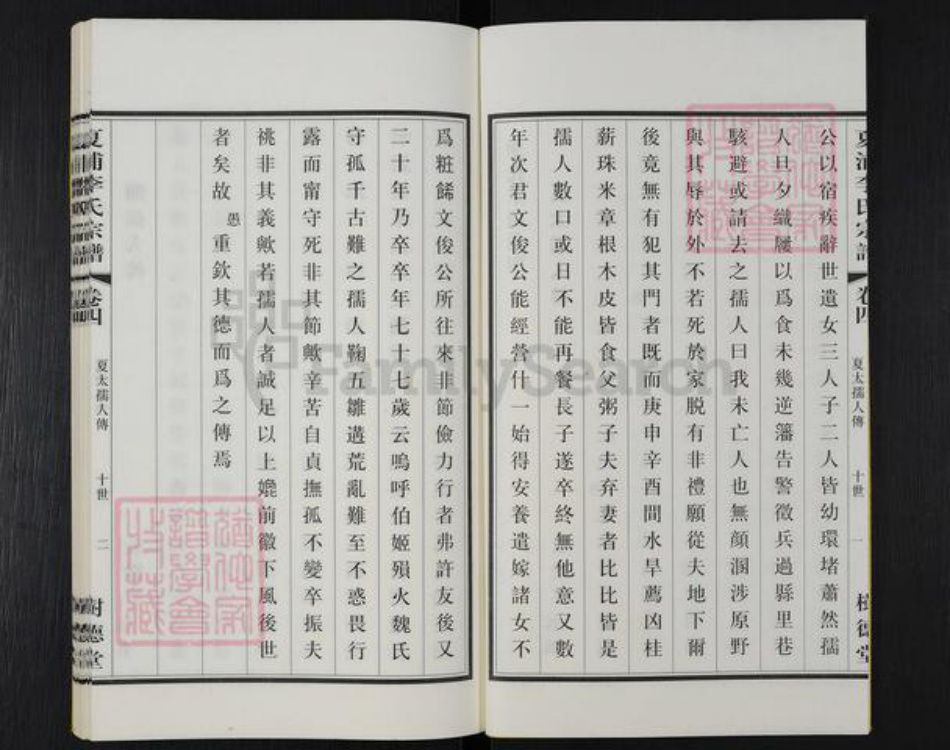 公以宿疾辭世遺女三人子二人皆幼環堵蕭然孺
人旦夕織屨以爲食未幾逆藩告警徵兵過縣里巷
駭避或請去之孺人曰我未亡人也無顔溷涉原野
與其辱於外不若死於家脱有非禮願從夫地下爾
後竟無有犯其門者既而庚申辛酉間水旱薦凶桂
薪珠米章根木皮皆食父粥子夫弃妻者比比皆是
孺人數口或日不能再餐長子遂卒終無他意又數
年次君文俊公能經營什一始得安養遣嫁諸女不
夏浦李氏宗譜
卷四
夏太孺人傳
十世
一
樹德堂
爲粧餙文俊公所往來非節儉力行者弗許友後又
二十年乃卒卒年七十七歲云嗚呼伯姬殞火魏氏
守孤千古難之孺人鞠五雛遘荒亂難至不惑畏行
露而甯守死非其節歟辛苦自貞撫孤不變卒振夫
祧非其義歟若孺人者誠足以上嬎前徽下風後世
者矣故愚重欽其德而爲之傳焉
夏浦李氏宗譜
卷四
夏太孺人傳
十世
二
樹德堂
FamilySearch